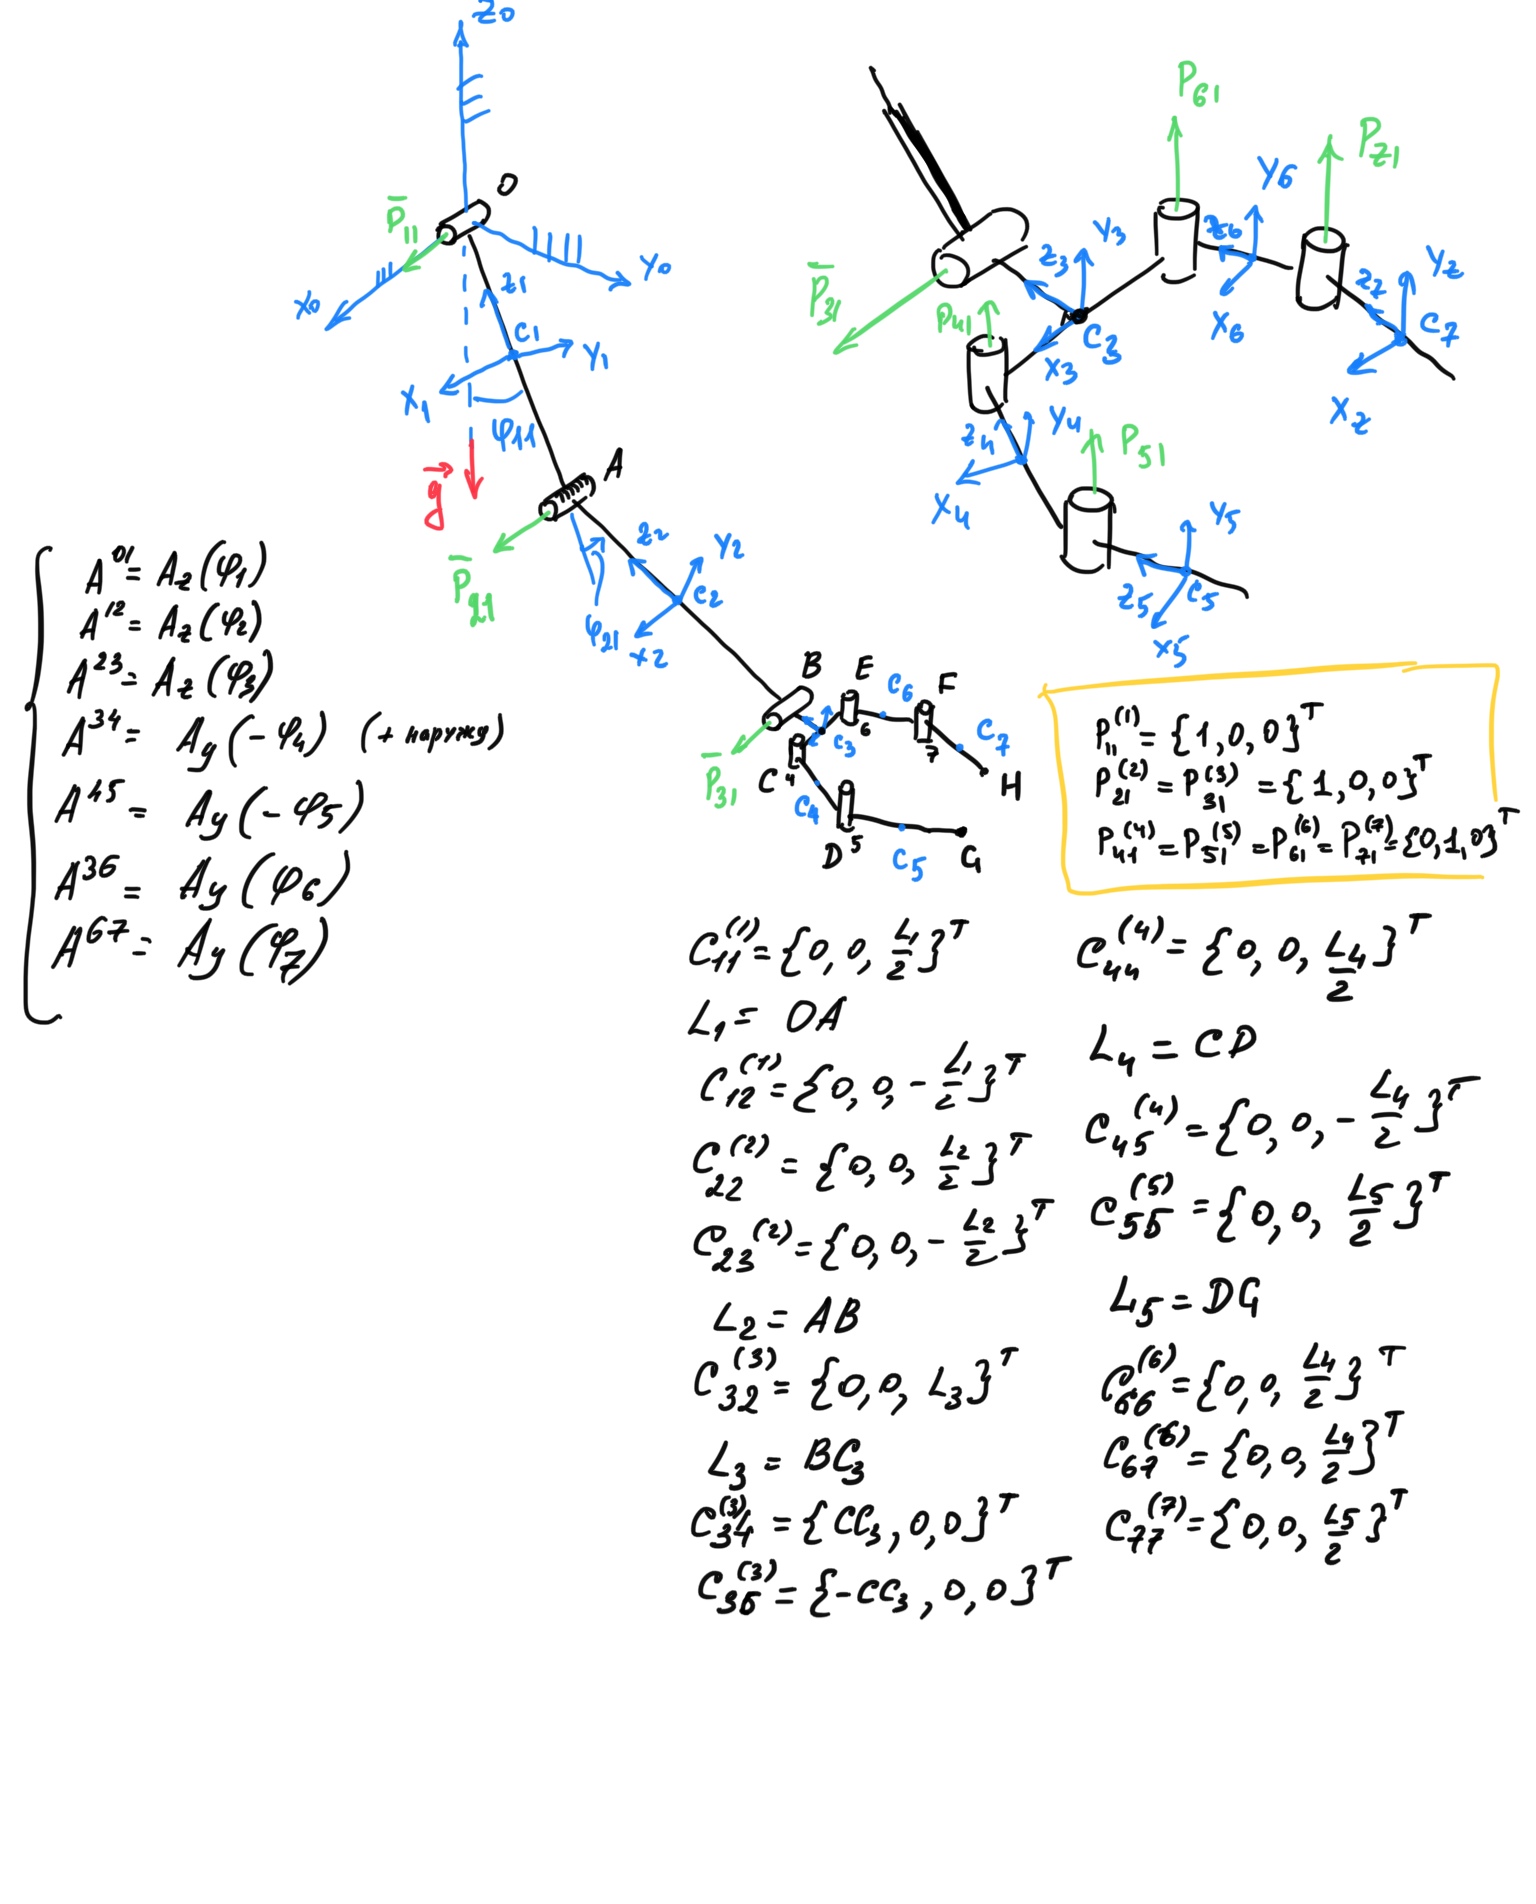 Z₀
O
P̄₁₁
X₀
Y₀
Z₁
C₁
Y₁
X₁
φ₁₁
g⃗
A
P̄₂₁
φ₂₁
Z₂
Y₂
C₂
X₂
B
P̄₃₁
C₃
E
6
C₆
F
7
C₇
H
C
4
C₄
D
5
C₅
G
P̄₃₁
P₆₁
P₇₁
Z₃
Y₃
C₃
X₃
Y₆
Z₆
X₆
Y₇
Z₇
C₇
X₇
P₄₁
Z₄
Y₄
X₄
P₅₁
Y₅
Z₅
C₅
X₅
A⁰¹ = A_z(φ₁)
A¹² = A_z(φ₂)
A²³ = A_z(φ₃)
A³⁴ = A_y(-φ₄) (+ наружу)
A⁴⁵ = A_y(-φ₅)
A³⁶ = A_y(φ₆)
A⁶⁷ = A_y(φ₇)
P₁₁⁽¹⁾ = {1, 0, 0}ᵀ
P₂₁⁽²⁾ = P₃₁⁽³⁾ = {1, 0, 0}ᵀ
P₄₁⁽⁴⁾ = P₅₁⁽⁵⁾ = P₆₁⁽⁶⁾ = P₇₁⁽⁷⁾ = {0, 1, 0}ᵀ
C₁₁⁽¹⁾ = {0, 0, L₁/2}ᵀ
L₁ = OA
C₁₂⁽¹⁾ = {0, 0, -L₁/2}ᵀ
C₂₂⁽²⁾ = {0, 0, L₂/2}ᵀ
C₂₃⁽²⁾ = {0, 0, -L₂/2}ᵀ
L₂ = AB
C₃₂⁽³⁾ = {0, 0, L₃}ᵀ
L₃ = BC₃
C₃₄⁽³⁾ = {CC₃, 0, 0}ᵀ
C₃₆⁽³⁾ = {-CC₃, 0, 0}ᵀ
C₄₄⁽⁴⁾ = {0, 0, L₄/2}ᵀ
L₄ = CD
C₄₅⁽⁴⁾ = {0, 0, -L₄/2}ᵀ
C₅₅⁽⁵⁾ = {0, 0, L₅/2}ᵀ
L₅ = DG
C₆₆⁽⁶⁾ = {0, 0, L₄/2}ᵀ
C₆₇⁽⁶⁾ = {0, 0, L₄/2}ᵀ
C₇₇⁽⁷⁾ = {0, 0, L₅/2}ᵀ